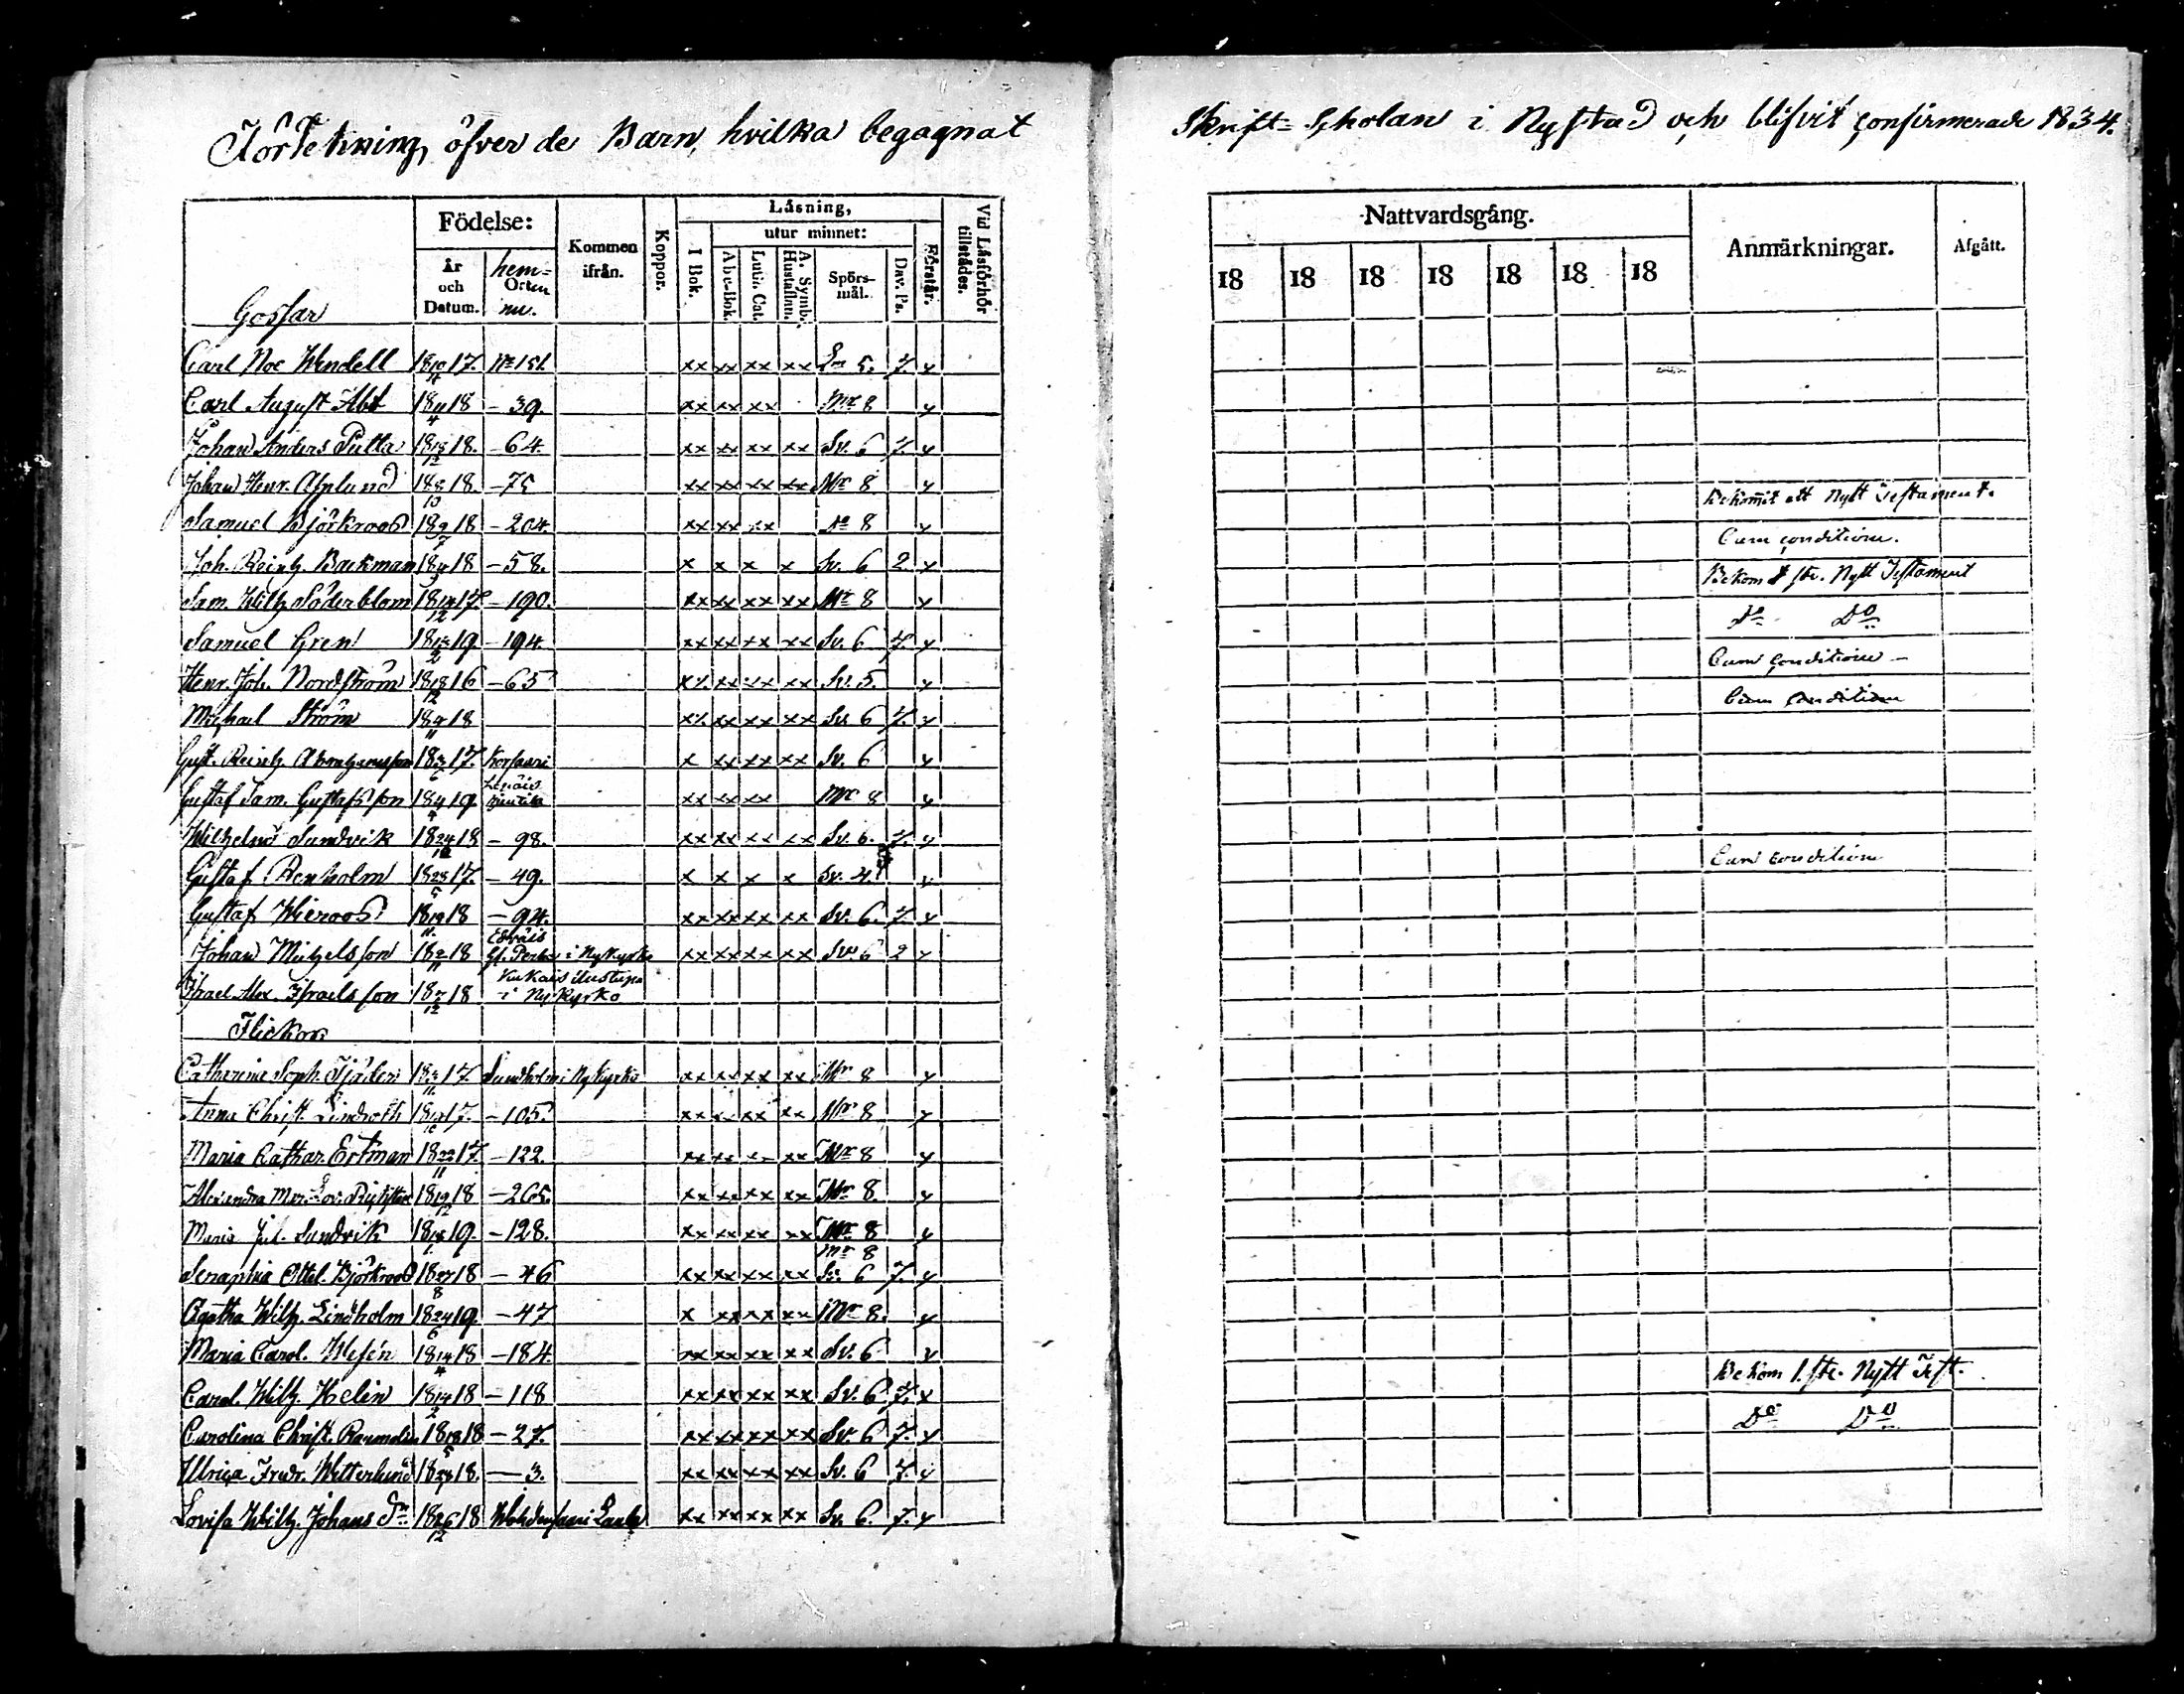 Förtekning öfver de Barn, hvilka begagnat
Skrift-Scholan i Nystad och blifvit confirmerade 1834.
Födelse:
År och Datum.
hem=Orten nu.
Kommen ifrån.
Koppor.
Läsning,
utur minnet:
I Bok.
Abc-Bok.
Luth. Cat.
A. Symb. Hustaflan.
Spörsmål.
Dav. Ps.
Förstår.
Vid Läsförhör tillstädes.
Nattvardsgång.
18 18 18 18 18 18 18
Anmärkningar.
Afgått.
Gossar
Carl Noe Wendell 18 10/4 17. No 151. xx xx xx xx Sv 5. 7. x
Carl August Abt 18 11/4 18 – 39. xx xx xx Mr 8 x
Johan Anders Putta 18 13/12 18. – 64. xx xx xx xx Sv. 6 7. x
Johan Henr. Asplund 18 8/10 18. – 75 xx xx xx xx Mr 8 x Bekommit ett Nytt Testament.
Samuel Björkroos 18 9/7 18 – 204. xx xx xx Mr 8 x Cum conditione.
Joh. Reinh. Backman 18 18 – 58. x x x x Sv. 6 2 x Bekom 1 ste. Nytt Testament
Sam. Wilh. Söderblom 18 17 – 190. xx xx xx xx Mr 8 x Do Do
Samuel Gren 18 19 – 194. xx xx xx xx Sv. 6 7. x Cum conditione –
Henr. Joh. Nordström 18 18/12 16 – 65 xx xx xx xx Sv. 5. x Cum conditione
Michael Ström 18 4/11 18 xx xx xx xx Sv 6 7. x
Gust. Reinh. 18 17. Korsaari x xx xx xx Sv. 6 x
Gustaf Sam. Gustafsson 18 19 xx xx xx Mr 8 x
Wilhelm Sundvik 18 24/12 18 – 98. xx xx xx xx Sv. 6. 7. x
Gustaf Renholm 18 28/5 17. – 49. x x x x Sv. 4. x Cum conditione
Gustaf Wieroos 18 19/11 18 – 94. xx xx xx xx Sv. 6. 7. x
Johan Michelsson 18 2/11 18 i Nykyrko xx xx xx xx Sv. 6 2 x
Israel Alex. Israelsson 18 18 i Nykyrko
Flickor
Catharina Soph. 18 3/11 17. Sundholm i Nykyrko xx xx xx xx Mr 8 x
Anna Christ. Lindroth 18 17. – 105. xx xx xx xx Mr 8 x
Maria Cathar. Ertman 18 22/11 17. – 122. xx xx xx xx Mr 8 x
Alexandra Mar. Lov. 18 19/12 18 – 265. xx xx xx xx Mr 8 x
Maria Jul. Sundvik 18 18/1 19. – 128. xx xx xx xx Mr 8 x
Seraphia Ottil. Björkroos 18 27/8 18 – 46 xx xx xx xx Mr 8 Sv. 6 7. x
Agatha Wilh. Lindholm 18 24/6 19. – 47 x xx xx xx Mr 8. x
Maria Carol. Wesén 18 14/4 18 – 184. xx xx xx xx Sv. 6 x
Carol. Wilh. Helin 18 14/2 18 – 118 xx xx xx xx Sv. 6 7. x Bekom 1 ste. Nytt Test.
Carolina Christ. 18 18/5 18 – 27. xx xx xx xx Sv. 6 7. x Do Do
Ulrica Fredr. Wetterlund 18 18. – 3. xx xx xx xx Sv. 6 7. x
Lovisa Wilh. Johans Dr 18 26/12 18 xx xx xx xx Sv. 6. 7. x